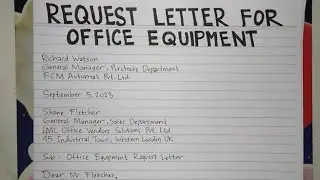 REQUEST LETTER FOR
OFFICE EQUIPMENT
Richard Watson
General Manager, Purchase Department
ECM Automat Pvt. Ltd
September 5, 2023
Shane Fletcher
General Manager, Sales Department
IMC Office Vendors Solutions Pvt. Ltd.
45 Industrial Town, Western London UK
Sub: Office Equipment Request Letter
Dear Mr. Fletcher,